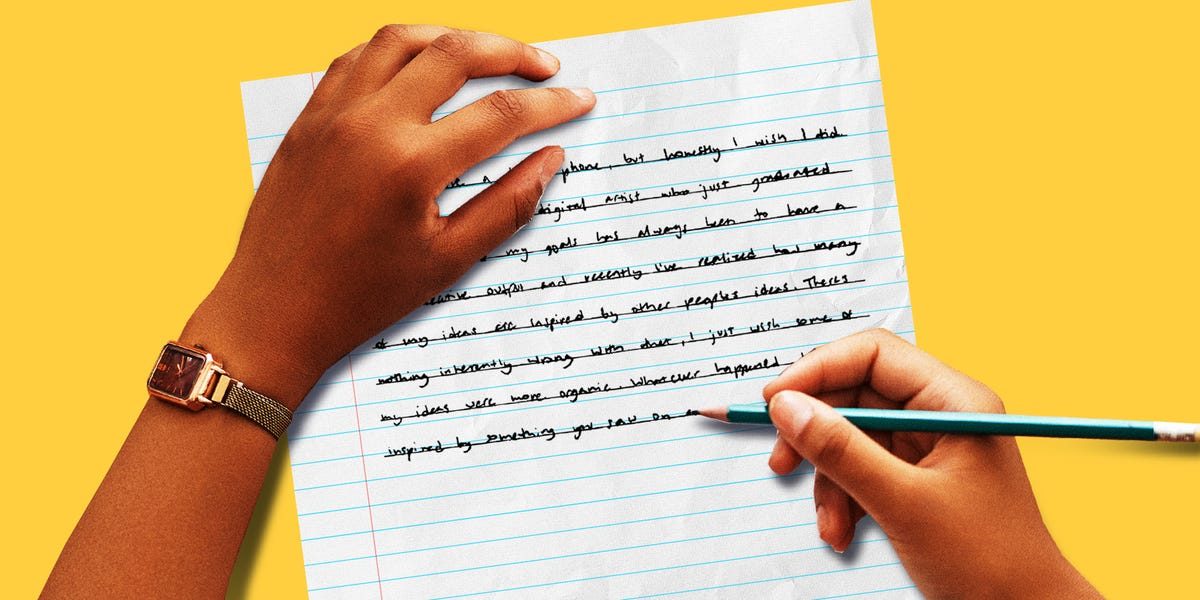 phone, but honestly I wish I did.
digital artist who just graduated
my goals has always been to have a
creative output and recently I've realized how many
of my ideas are inspired by other people's ideas. There's
nothing inherently wrong with that, I just wish some of
my ideas were more organic. Whatever happened
inspired by something you saw on